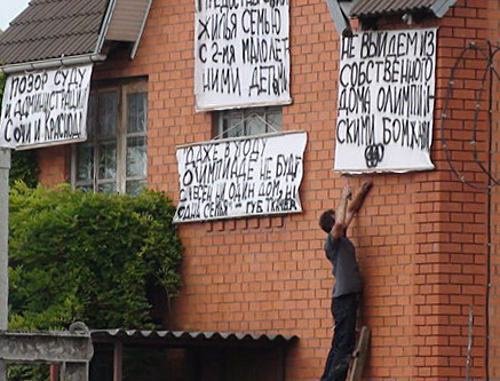 ПОЗОР СУДУ
И АДМИНИСТРАЦИИ
СОЧИ И КРАСНОД
ПРЕДОСТАВЛЕНИ
ЖИЛЬЯ СЕМЬЮ
С 2-МЯ МАЛОЛЕТ
НИМИ ДЕТЬМИ
ДАЖЕ В УГОДУ
ОЛИМПИАДЕ НЕ БУДЕТ
СНЕСЕН НИ ОДИН ДОМ, НИ
ОДНА СЕМЬЯ ГУБ. ТКАЧЕВ
НЕ ВЫЙДЕМ ИЗ
СОБСТВЕННОГО
ДОМА ОЛИМПИЙ-
СКИМИ БОМЖАМИ